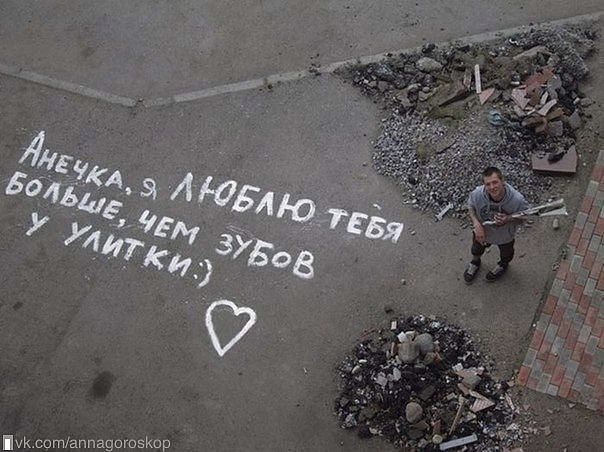 Анечка, я люблю тебя
больше, чем зубов
у улитки:)
vk.com/annagoroskop